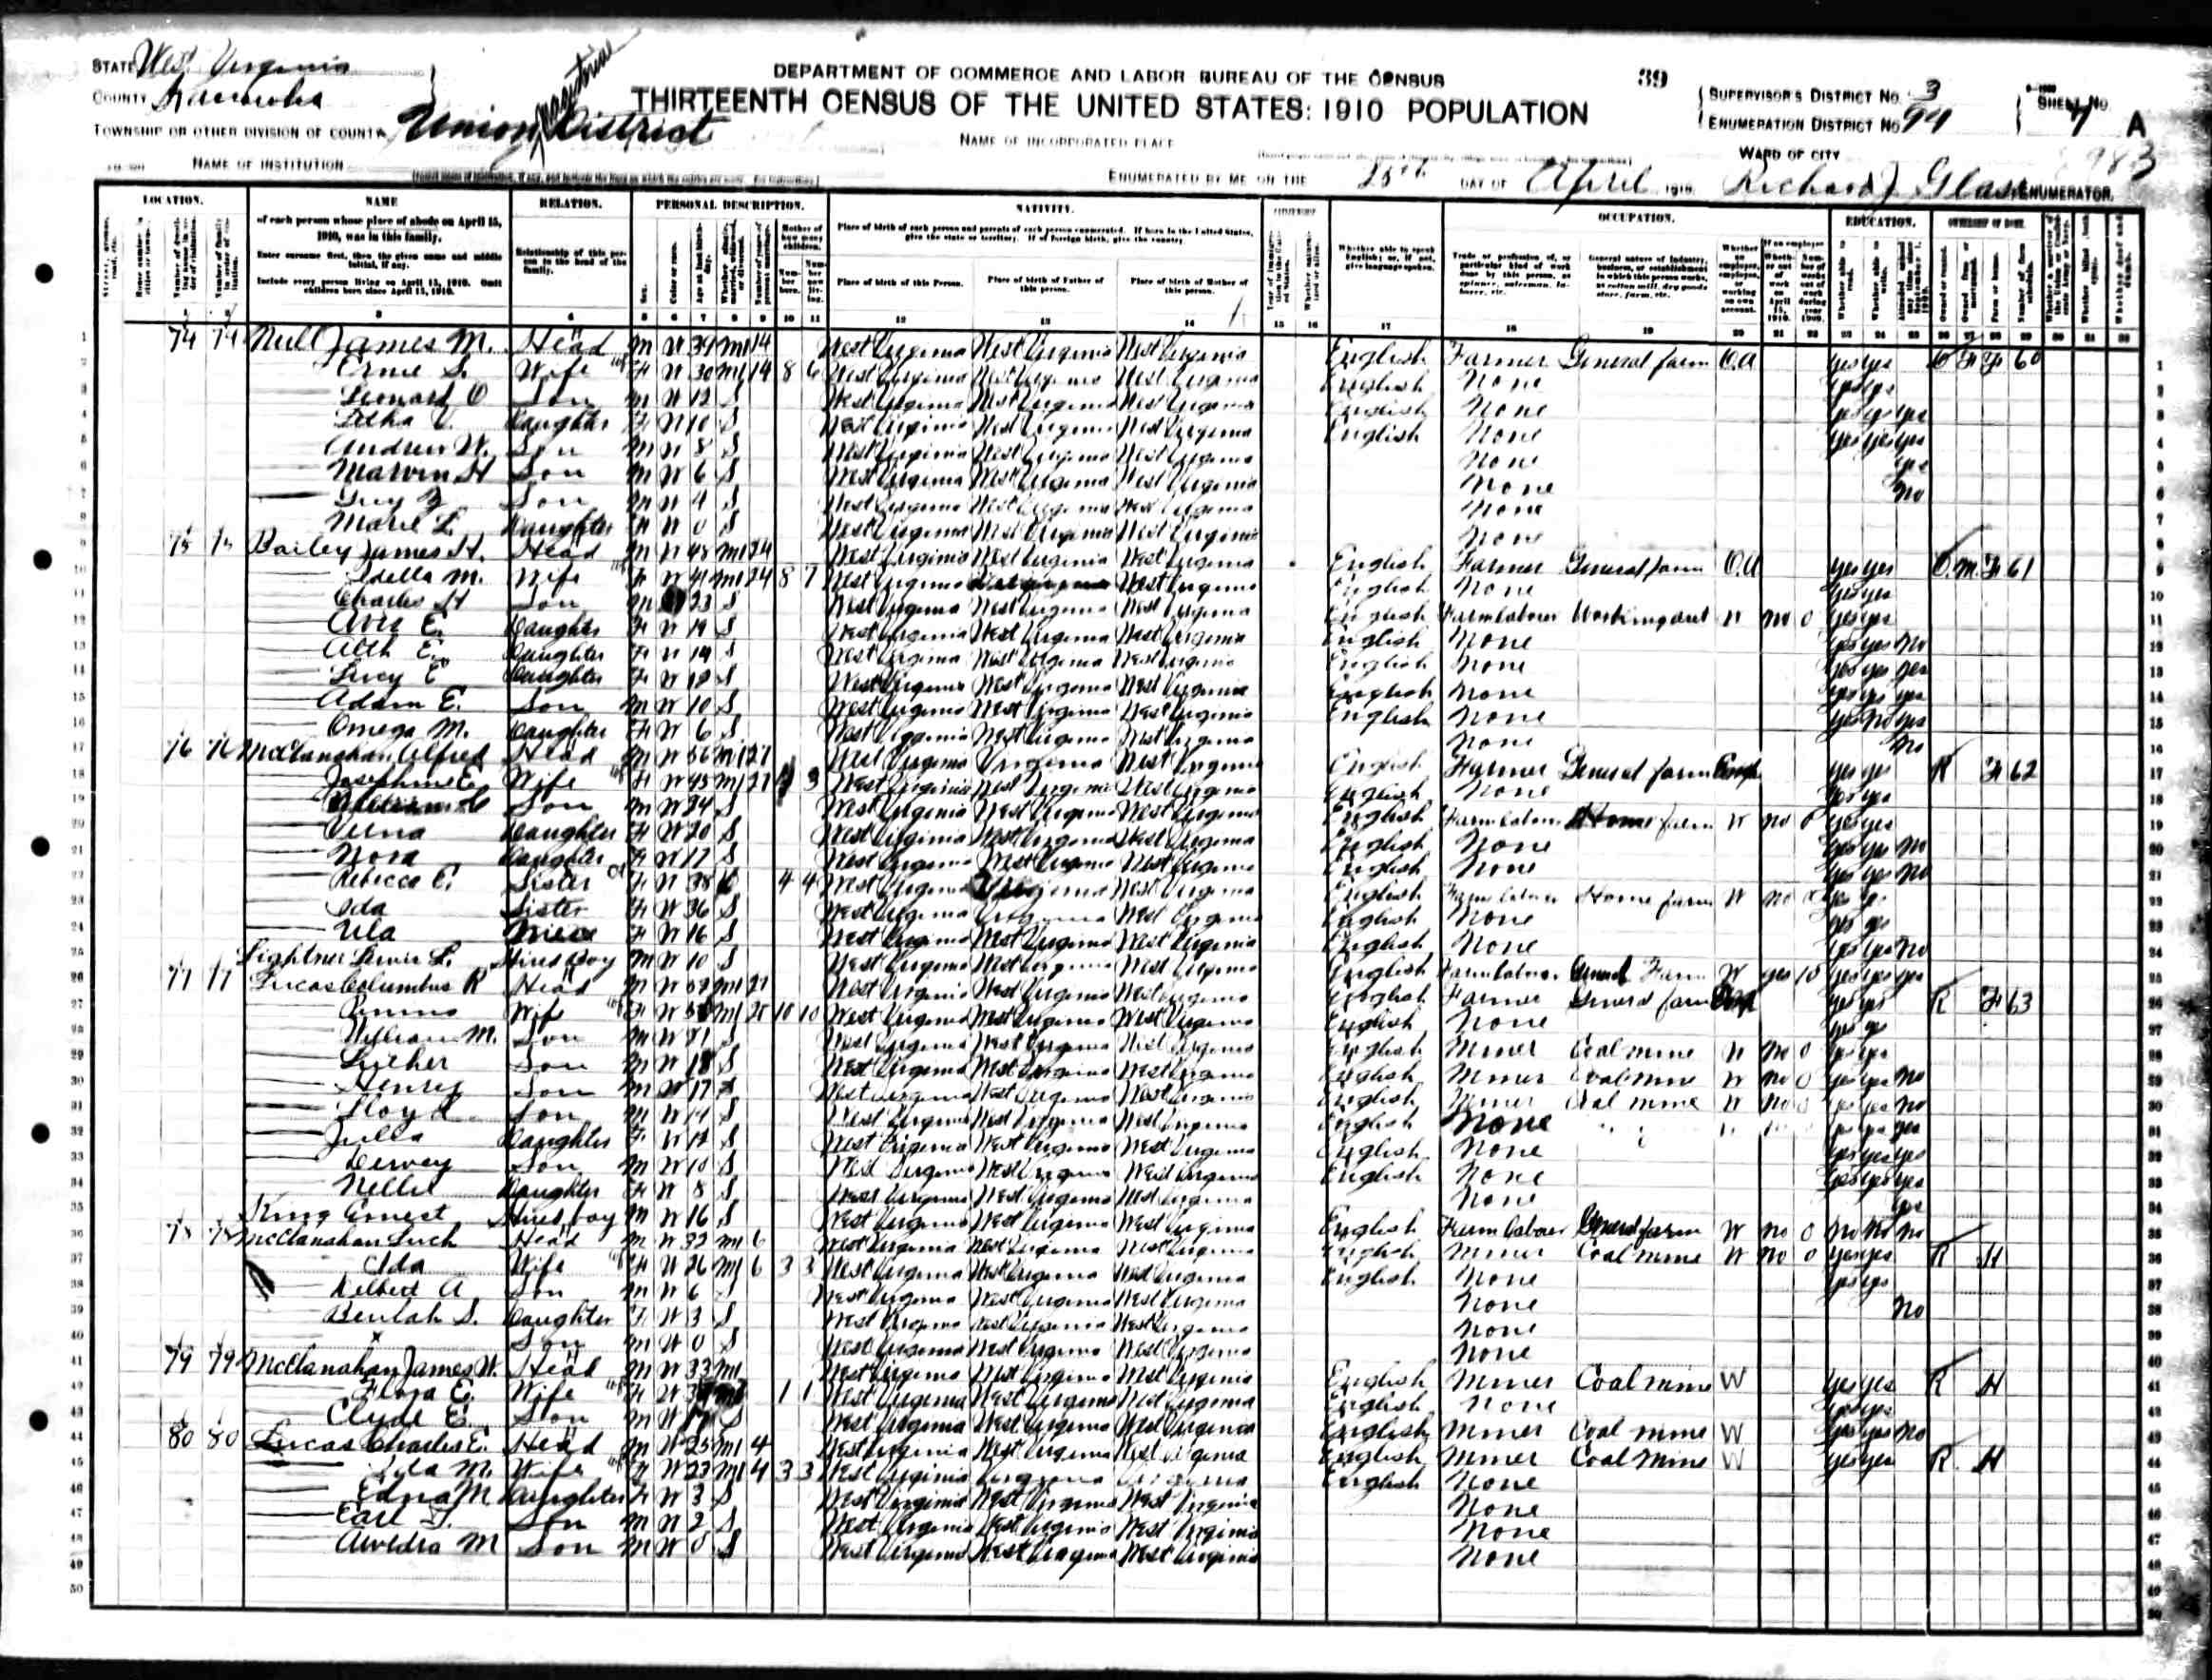 STATE West Virginia
COUNTY Kanawha
TOWNSHIP OR OTHER DIVISION OF COUNTY Union Magisterial District
DEPARTMENT OF COMMERCE AND LABOR BUREAU OF THE CENSUS
THIRTEENTH CENSUS OF THE UNITED STATES: 1910 POPULATION
39
SUPERVISOR'S DISTRICT No. 3
ENUMERATION DISTRICT No. 94
SHEET No. 7 A
NAME OF INCORPORATED PLACE
WARD OF CITY
983
NAME OF INSTITUTION
ENUMERATED BY ME ON THE 25th DAY OF April, 1910. Richard J. Glass ENUMERATOR.
LOCATION. NAME RELATION. PERSONAL DESCRIPTION. NATIVITY. CITIZENSHIP. OCCUPATION. EDUCATION. OWNERSHIP OF HOME.
of each person whose place of abode on April 15, 1910, was in this family.
Enter surname first, then the given name and middle initial, if any.
Include every person living on April 15, 1910. Omit children born since April 15, 1910.
Relationship of this person to the head of the family.
Place of birth of each person and parents of each person enumerated. If born in the United States, give the state or territory. If of foreign birth, give the country.
Place of birth of this Person. Place of birth of Father of this person. Place of birth of Mother of this person.
Whether able to speak English; or, if not, give language spoken.
1 74 74 Null James M. Head M W 39 M1 14 West Virginia West Virginia West Virginia English Farmer General farm O.A yes yes O F F 60
2 S. Wife F W 30 M1 14 8 6 West Virginia West Virginia West Virginia English None yes yes
3 Leonard O Son M W 12 S West Virginia West Virginia West Virginia English None yes yes yes
4 Daughter F W 10 S West Virginia West Virginia West Virginia English None yes yes yes
5 Andrew W. Son M W 8 S West Virginia West Virginia West Virginia None yes
6 Marvin H Son M W 6 S West Virginia West Virginia West Virginia None no
7 Guy Son M W 4 S West Virginia West Virginia West Virginia None
8 Marie L. Daughter F W 0 S West Virginia West Virginia West Virginia None
9 75 75 Bailey James H. Head M W 48 M1 24 West Virginia West Virginia West Virginia English Farmer General farm O.A yes yes O M F 61
10 Idella M. Wife F W 41 M1 24 8 7 West Virginia West Virginia West Virginia English None yes yes
11 Charles H Son M 23 S West Virginia West Virginia West Virginia English Farm laborer Working out W no 0 yes yes
12 E. Daughter F W 19 S West Virginia West Virginia West Virginia English None yes yes no
13 E. Daughter F W 14 S West Virginia West Virginia West Virginia English None yes yes yes
14 Lucy E Daughter F W 12 S West Virginia West Virginia West Virginia English None yes yes yes
15 Adam E. Son M W 10 S West Virginia West Virginia West Virginia English None yes no yes
16 Omega M. Daughter F W 6 S West Virginia West Virginia West Virginia None no
17 76 76 McClanahan Alfred Head M W 56 M1 27 West Virginia Virginia West Virginia English Farmer General farm Emp yes yes R F 62
18 Josephine E. Wife F W 45 M1 27 3 West Virginia West Virginia West Virginia English None yes yes
19 Son M W 24 S West Virginia West Virginia West Virginia English Farm laborer Home farm W no 0 yes yes
20 Verna Daughter F W 20 S West Virginia West Virginia West Virginia English None yes yes no
21 Nora Daughter F W 17 S West Virginia West Virginia West Virginia English None yes yes no
22 Rebecca E. Sister F W 38 4 4 West Virginia Virginia West Virginia English Farm laborer Home farm W no yes yes
23 Ida Sister F W 36 S West Virginia Virginia West Virginia English None yes yes
24 Ula Niece F W 16 S West Virginia West Virginia West Virginia English None yes yes no
25 Lightner Lewis L. Hired boy M W 10 S West Virginia West Virginia West Virginia English Farm laborer General Farm W yes 10 yes yes yes
26 77 77 Lucas Columbus R Head M W M1 West Virginia West Virginia West Virginia English Farmer General farm Emp yes yes R F 63
27 Wife F W M1 10 10 West Virginia West Virginia West Virginia English None yes yes
28 William M. Son M W 21 S West Virginia West Virginia West Virginia English Miner Coal mine W no 0 yes yes
29 Luther Son M W 18 S West Virginia West Virginia West Virginia English Miner Coal mine W no 0 yes yes no
30 Henry Son M W 17 S West Virginia West Virginia West Virginia English Miner Coal mine W no 0 yes yes no
31 Lloyd Son M W 14 S West Virginia West Virginia West Virginia English None yes yes yes
32 Julia Daughter F W 12 S West Virginia West Virginia West Virginia English None yes yes yes
33 Dewey Son M W 10 S West Virginia West Virginia West Virginia English None yes yes yes
34 Nellie Daughter F W 8 S West Virginia West Virginia West Virginia None yes
35 King Ernest Hired boy M W 16 S West Virginia West Virginia West Virginia English Farm laborer General farm W no 0 no no no
36 78 78 McClanahan Head M W 32 M1 6 West Virginia West Virginia West Virginia English Miner Coal mine W no 0 yes yes R H
37 Ada Wife F W 26 M1 6 3 3 West Virginia West Virginia West Virginia English None yes yes
38 Delbert A Son M W 6 S West Virginia West Virginia West Virginia None no
39 Beulah S. Daughter F W 3 S West Virginia West Virginia West Virginia None
40 x Son M W 0 S West Virginia West Virginia West Virginia None
41 79 79 McClanahan James W. Head M W 33 M1 West Virginia West Virginia West Virginia English Miner Coal mine W yes yes R H
42 Flora E. Wife F W 1 1 West Virginia West Virginia West Virginia English None yes yes
43 Clyde E. Son M W S West Virginia West Virginia West Virginia English Miner Coal mine W yes yes no
44 80 80 Lucas Charles E. Head M W 25 M1 4 West Virginia West Virginia West Virginia English Miner Coal Mine W yes yes R H
45 M. Wife F W 23 M1 4 3 3 West Virginia Virginia Virginia English None
46 Edna M Daughter F W 3 S West Virginia West Virginia West Virginia None
47 Earl Son M W 2 S West Virginia West Virginia West Virginia None
48 M Son M W 0 S West Virginia West Virginia West Virginia None
49
50